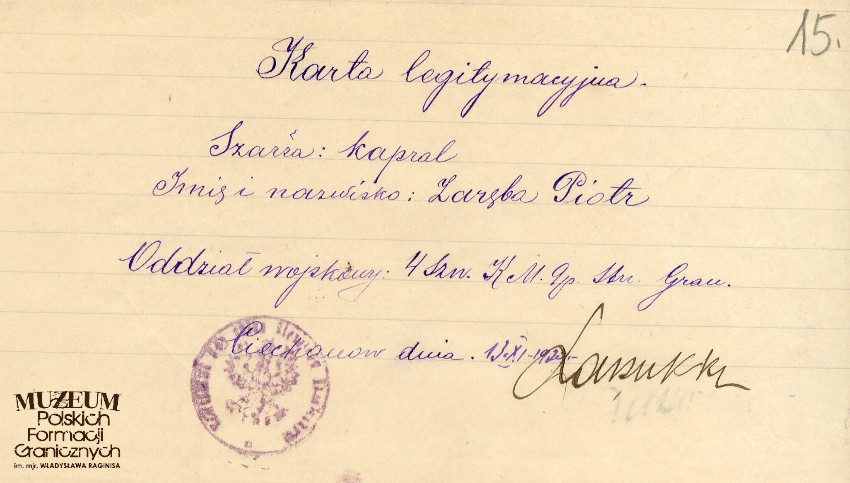 15.
Karta legitymacyjna.
Szarża: kapral
Imię i nazwisko: Zaręba Piotr
Oddział wojskowy: 4 Szw. K.M. 9p. Str. Gran.
Ciechanow dnia.
MUZEUM
Polskich
Formacji
Granicznych
im. mjr. WŁADYSŁAWA RAGINISA